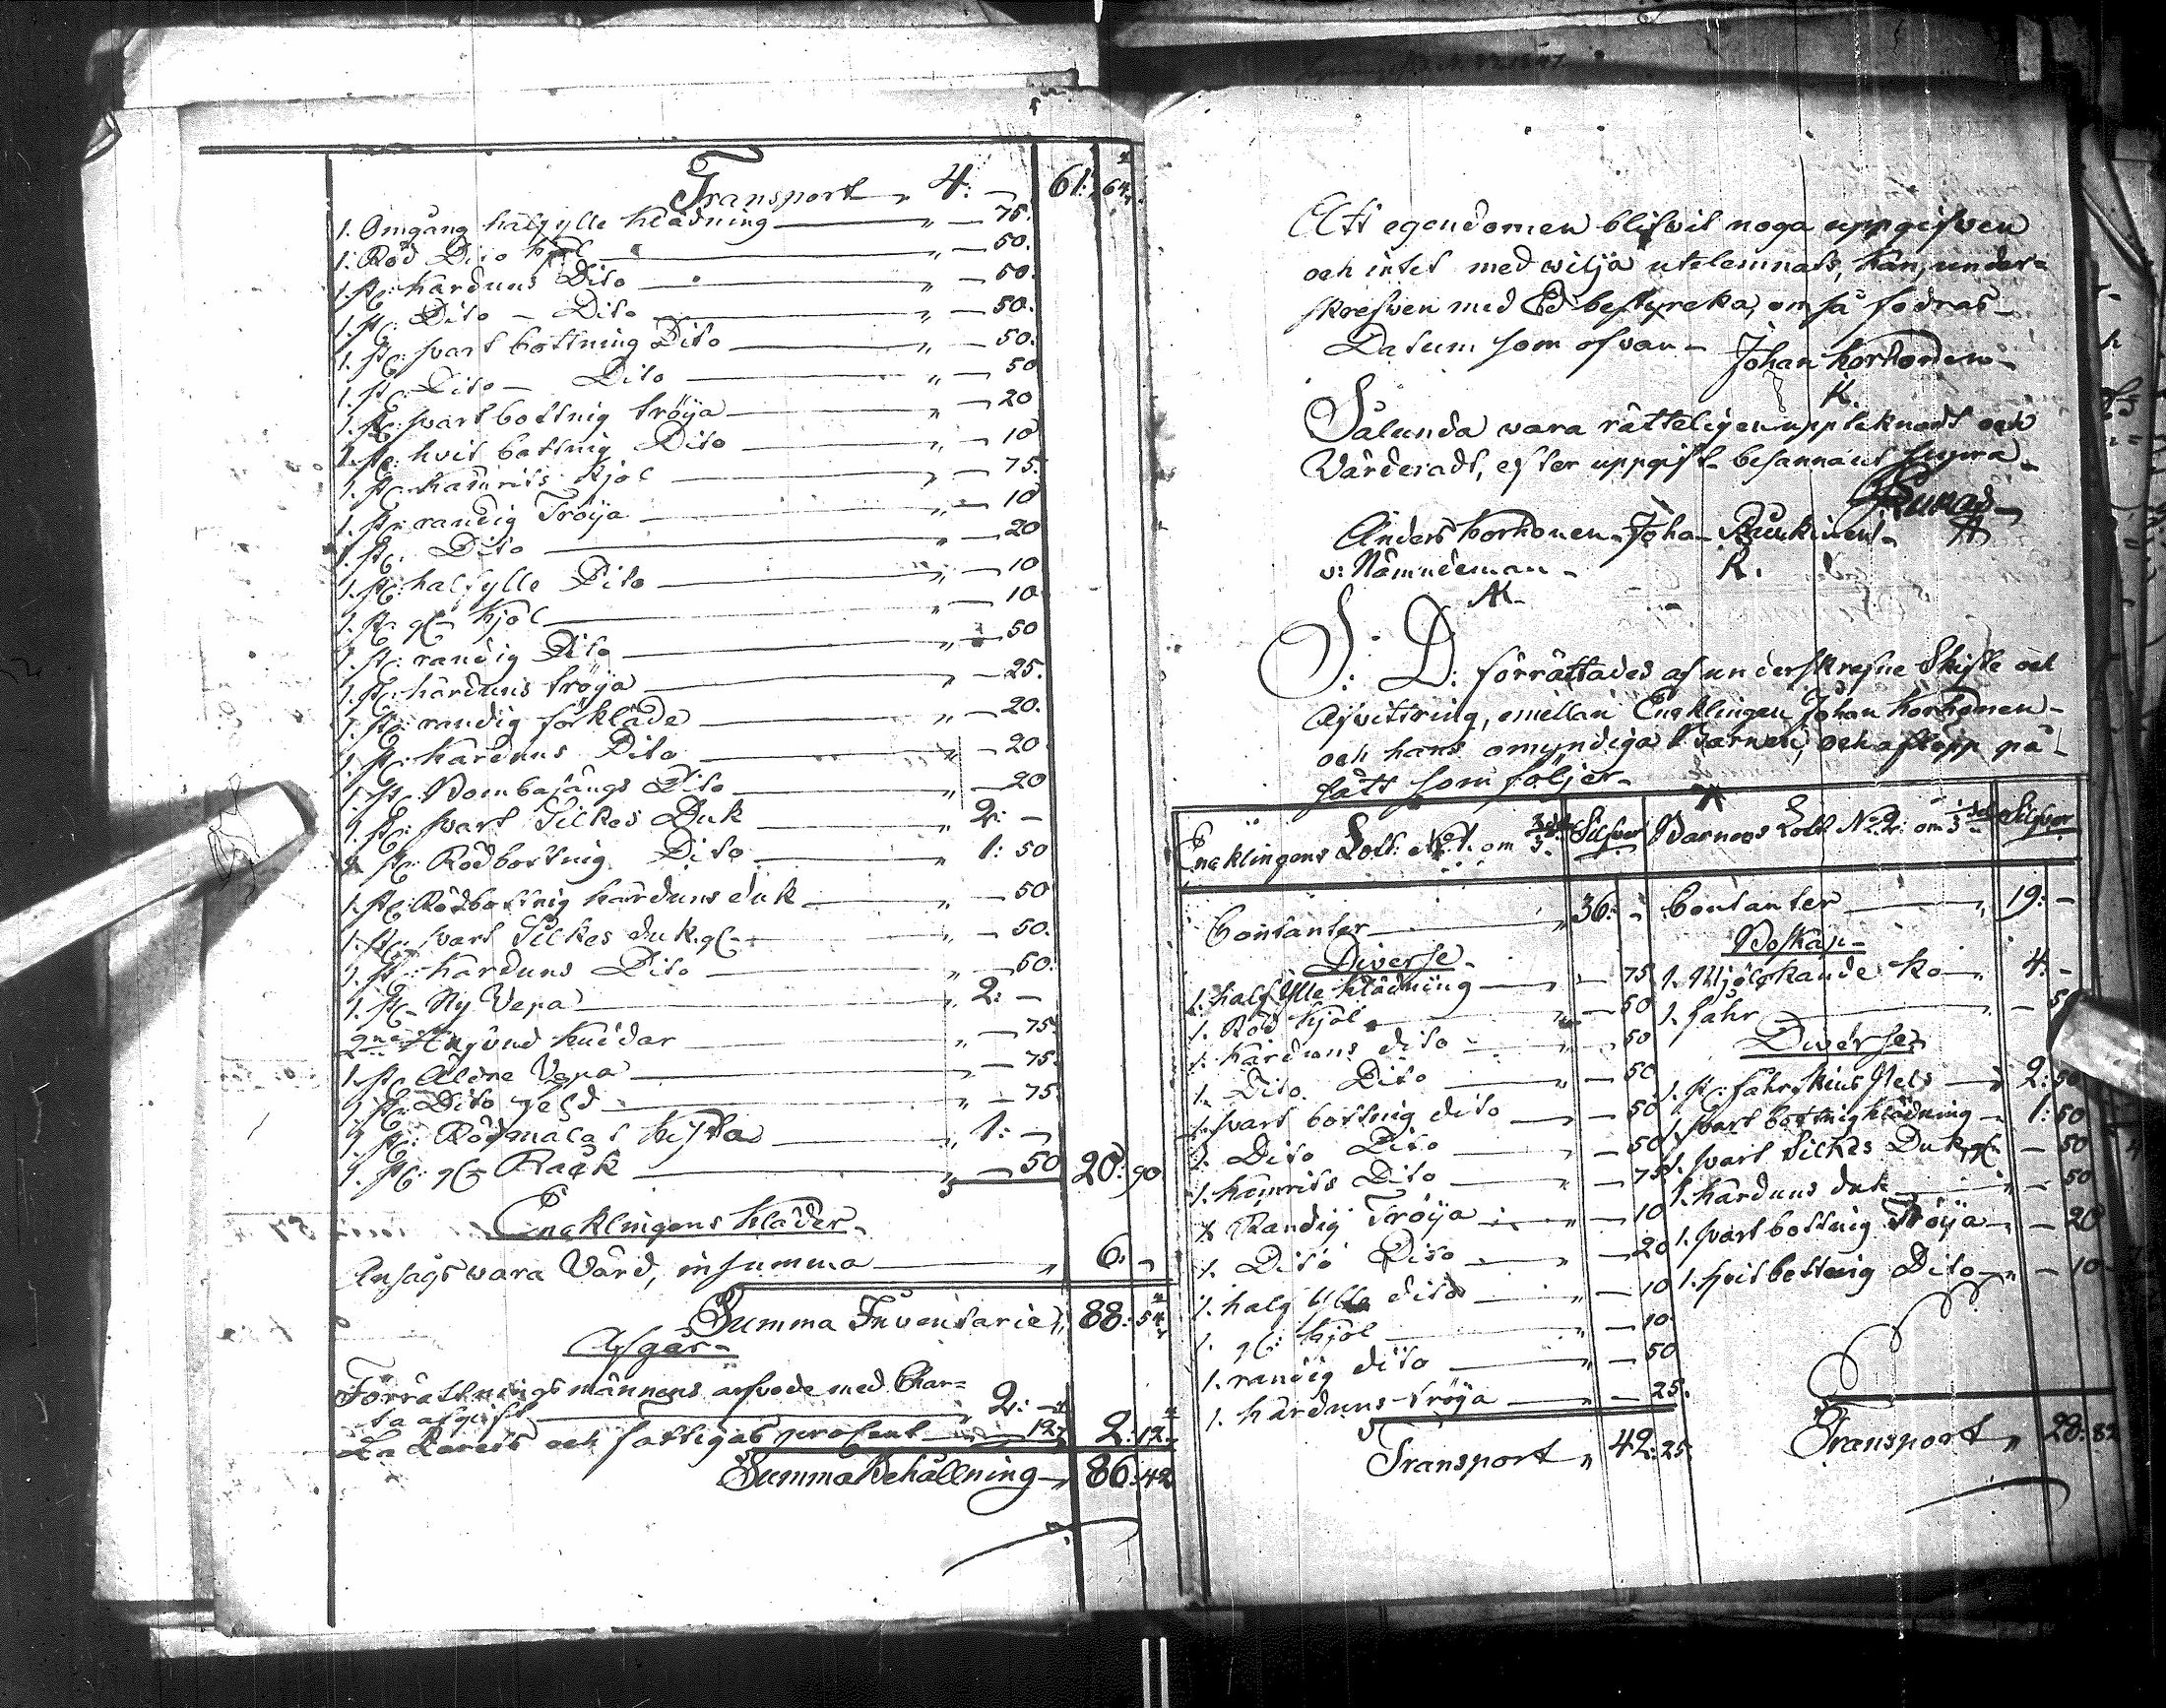 Transport „ 4: — 61: 64
1. Omgång half ylle Klädning — „ — 75.
1. Röd Dito Kjol — „ — 50.
1. st: Kårduns Dito — „ — 50.
1. st: Dito — Dito — „ — 50.
1. st: svart bottning Dito — „ — 50.
1. st: Dito — Dito — „ — 50
1. st: svart bottnig tröija — „ — 20
1. st: hvit bottnig Dito — „ — 10
1. st: Kamrits Kjol — „ — 75.
1. st: randig Tröija — „ — 10
1. st: Dito — „ — 20
1. st: half ylle Dito — „ — 10
1. st: gl: Kjol — „ — 10
1. st: randig Dito — „ — 50
1. st: Kårduns tröija — „ — 25.
1. st: randig förkläde — „ — 20.
1. st: Karduns Dito — „ — 20
1. st: Bombasängs Dito — „ — 20
1. st: svart Silkes Duk — „ 2: —
1. st: Rödbottnig Dito — „ 1: 50
1. st: Rödbottnig Karduns duk — „ — 50
1. st: svart Silkes duk. gl — „ — 50.
1. st: Karduns Dito — „ — 50.
1. st: Ny Vepa — „ 2: —
2ne Hufvud Kuddar — „ — 75.
1. st: Äldre Vepa — „ — 75.
1. st: Dito — „ — 75.
1. st: Rödmålat Kista — „ 1: —
1. st: gl: Rack — „ — 50 20: 90
Encklingens Kläder.
Ansågs wara Värd, in summa — „ 6: —
Summa Inventarie „ 88: 54
Afgår
Förrättningsmännens arfvode med Char=
ta afgift — „ 2: —
och fattigas procent — 12 2: 12
Summa Behållning „ 86: 42
Att egendomen blifvit noga uppgifven
och intet med wilja utelemnats, kan under=
skrefven med Ed bestyrcka, om så fodras —
Datum som ofvan — Johan Korhonen —
K.
Sålunda vara rätteligen upptecknadt och
Värderadt, efter uppgift — besannaut supra —
Anders Korhonen — Joha
v: Nämndeman — R.
AK
S: D: förrättades af underskrefne Skifte och
Afvittring, emellan Encklingen Johan Korhonen —
och hans omyndiga Barnen, och aflopp på
sått som följer —
Encklingens Lott No 1. om 2/3 Silfver Barnens Lott No 2: om 1/3 Silfver
Contanter — „ 36: — Contanter — „ 19: —
Diverse — Boskap —
1. half Ylle Klädning — „ — 75 1. Mjölckande Ko — „ 4: —
1. Röd Kjol — „ — 50 1. fåhr — „ — 50
1. Kårduns dito — „ — 50 Diverse
1. Dito. Dito — „ — 50 1. st: fåhrskins Pels — „ 2: 50
1. svart bottnig dito — „ — 50 1. svart bottnig Klädning — 1: 50
1. Dito Dito — „ — 50 1. svart Silkes Duk, gl. — 50
1. Kamrits Dito — „ — 75 1. Karduns duk — „ — 50
1. Randig Tröija — „ — 10 1. svart bottnig Tröija — „ — 20
1. Dito Dito — „ — 20 1. hvit bottnig Dito — „ — 10
1. half Ylle dito — „ — 10
1. gl: Kjol — „ — 10
1. randig dito — „ — 50
1. Kårduns tröija — „ — 25.
Transport „ 42: 25. Transport „ 28: 82